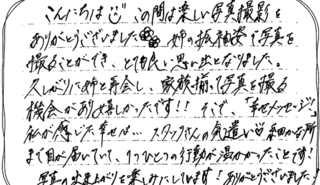 こんにちは この間は楽しい写真撮影を
ありがとうございました 姉の振袖姿で写真を
撮ることができ、とても良い思い出となりました。
久しぶりに姉と再会し、家族揃って写真を撮る
機会があり嬉しかったです!! そこで、「幸せメッセージ」
私が感じた幸せは… スタッフさんの気遣い 細かな所
まで目が届いていて、1つひとつの行動が温かかったことです!
写真の出来上がりを楽しみにしています! ありがとうございました!